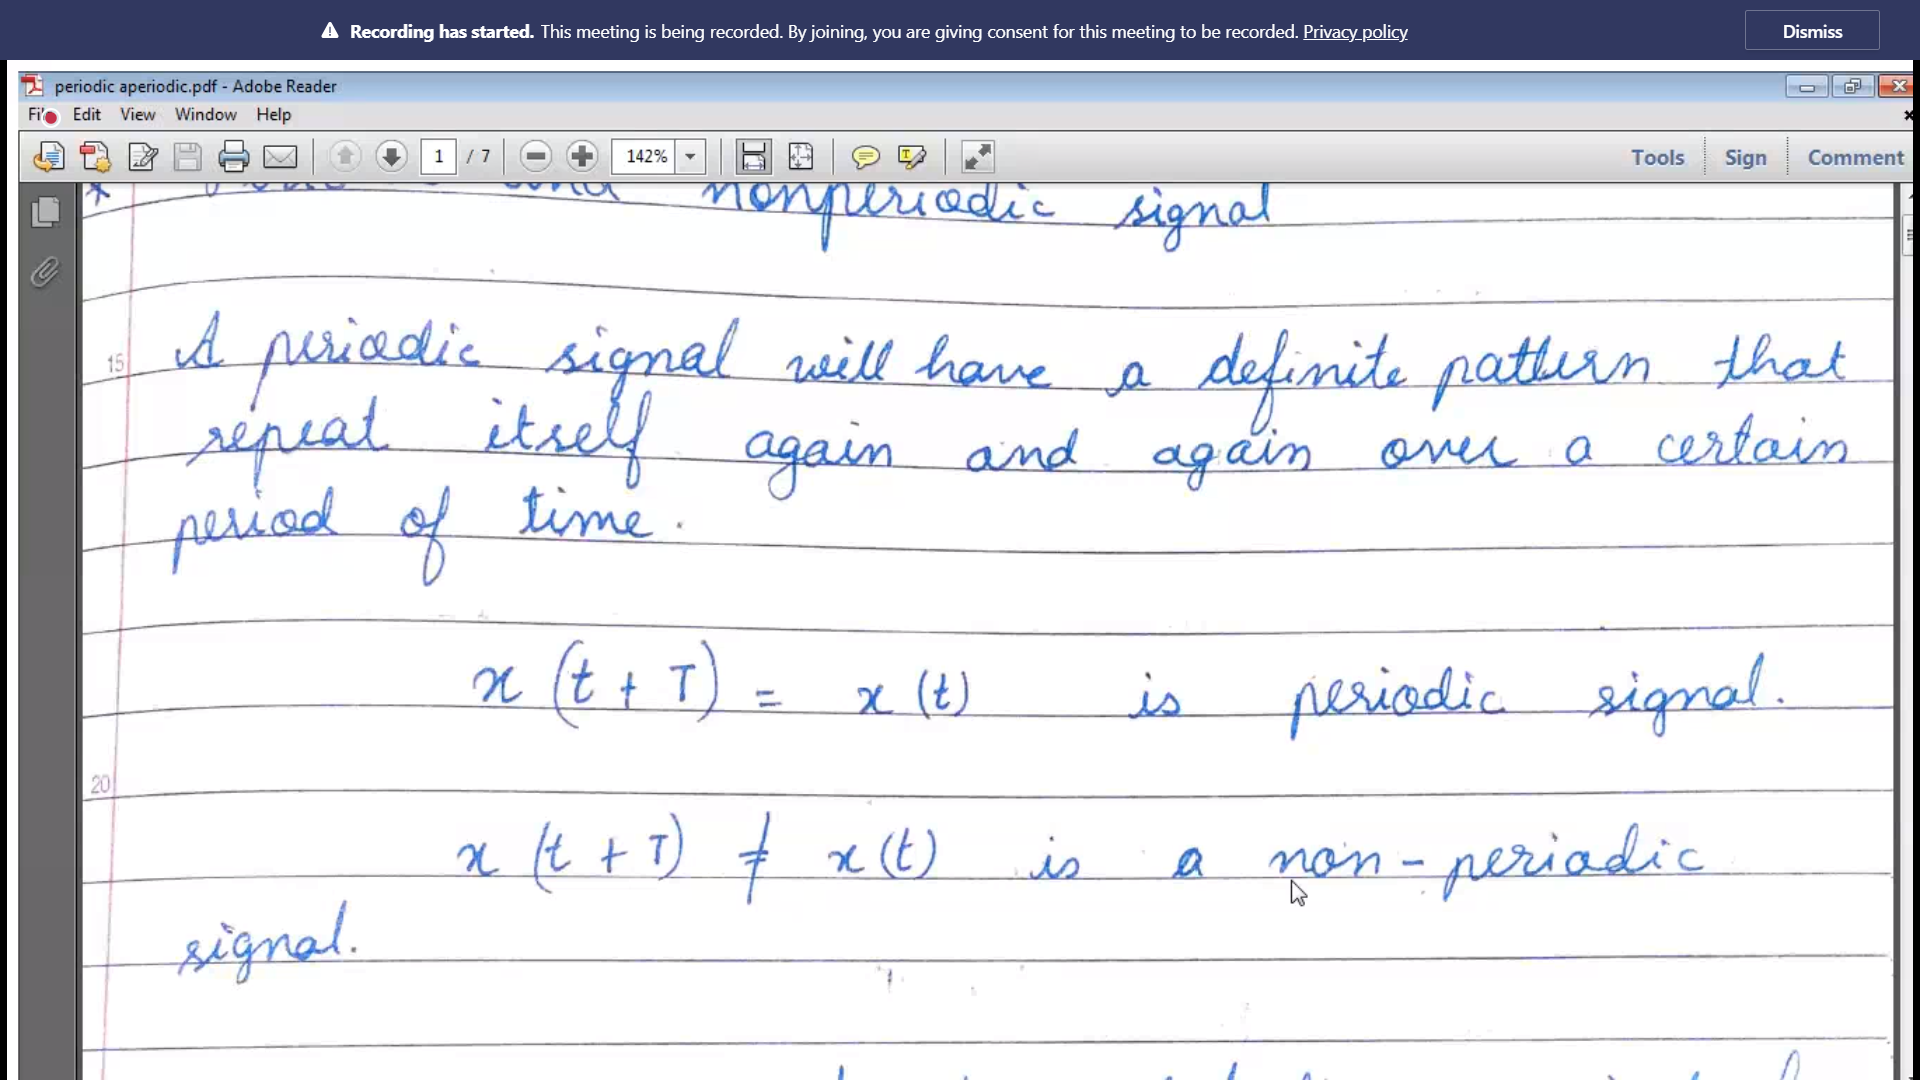 Recording has started. This meeting is being recorded. By joining, you are giving consent for this meeting to be recorded. Privacy policy
Dismiss
periodic aperiodic.pdf - Adobe Reader
File Edit View Window Help
1 / 7 142% Tools Sign Comment
* and nonperiodic signal
15 A periodic signal will have a definite pattern that
repeat itself again and again over a certain
period of time.
x (t + T) = x (t) is periodic signal.
20
x (t + T) ≠ x (t) is a non-periodic
signal.